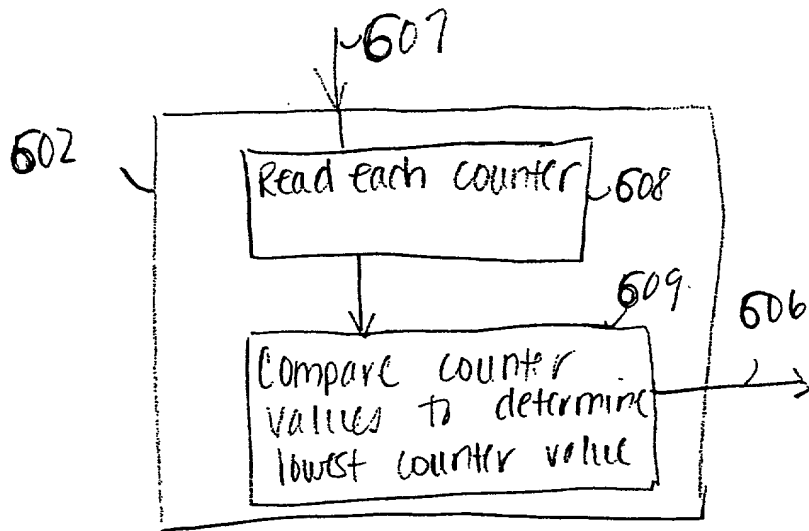 607
602
Read each counter
608
609.
606
Compare counter
values to determine
lowest counter value